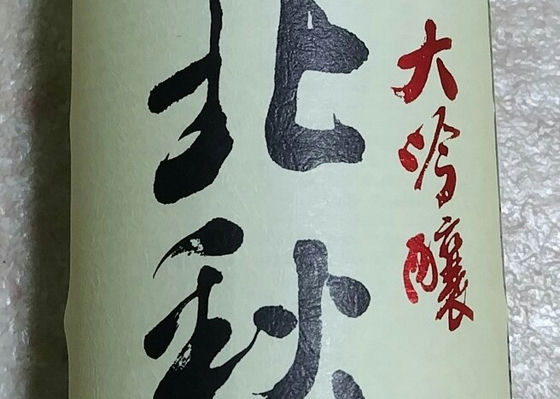 大吟醸
北秋